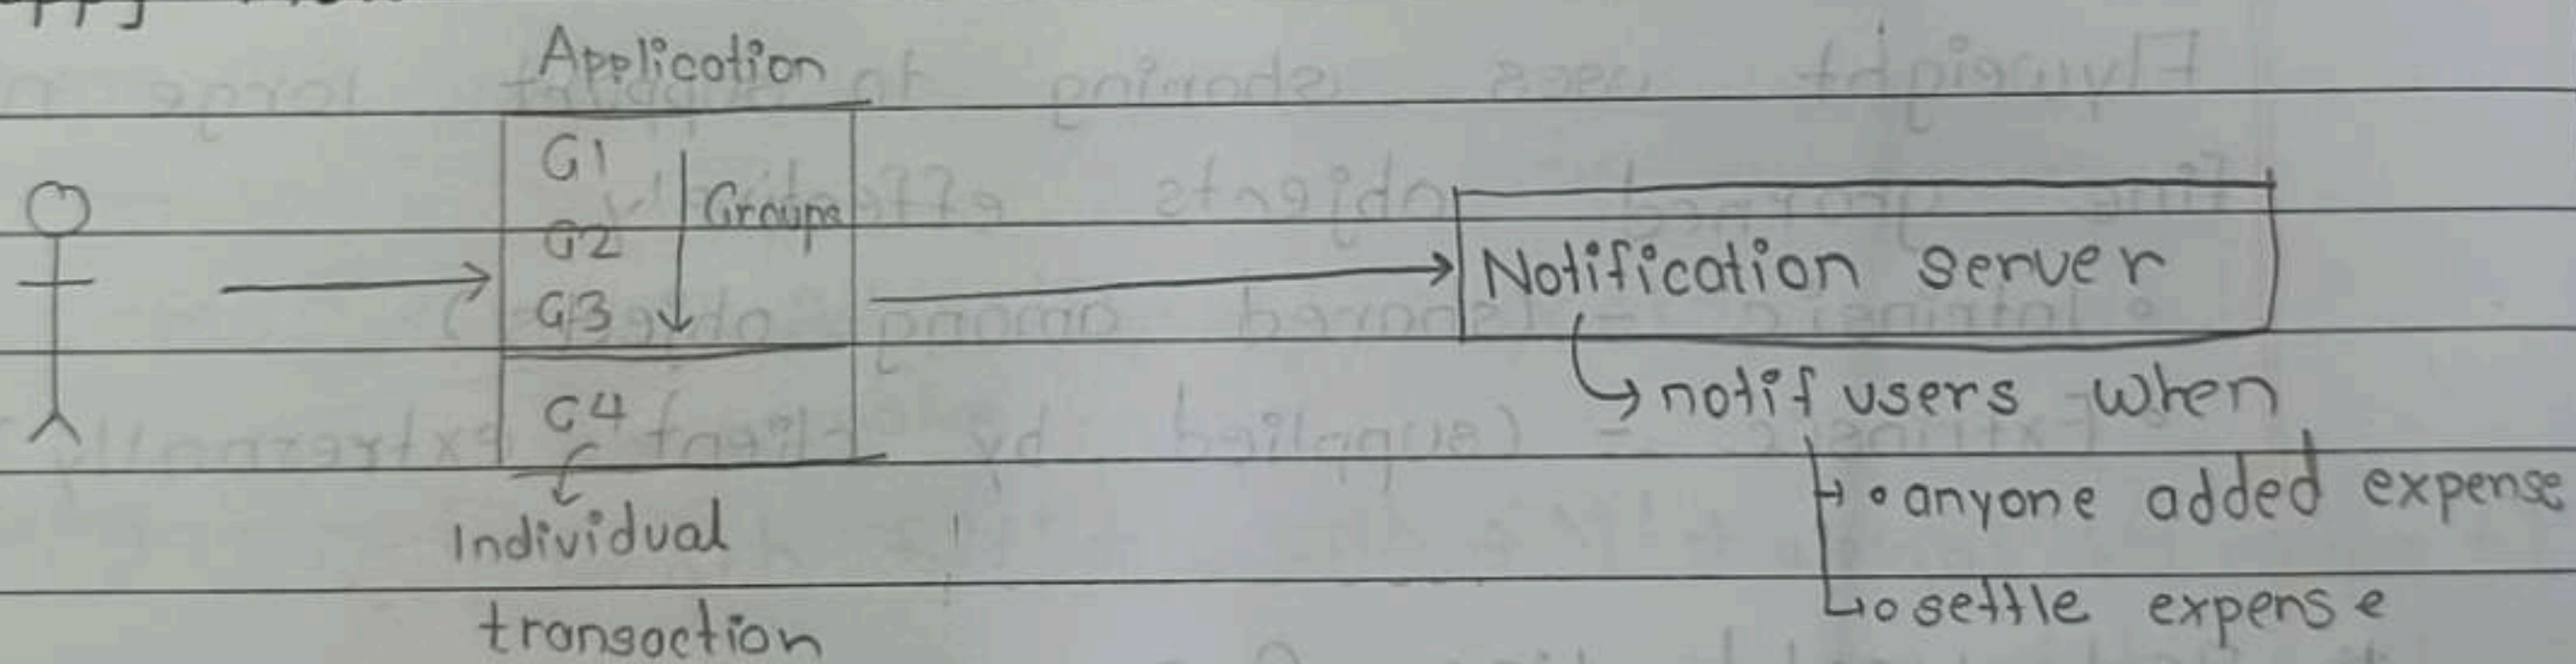 Application
G1
Groups
G2
G3
G4
Individual
transaction
Notification server
notif users when
• anyone added expense
o settle expense